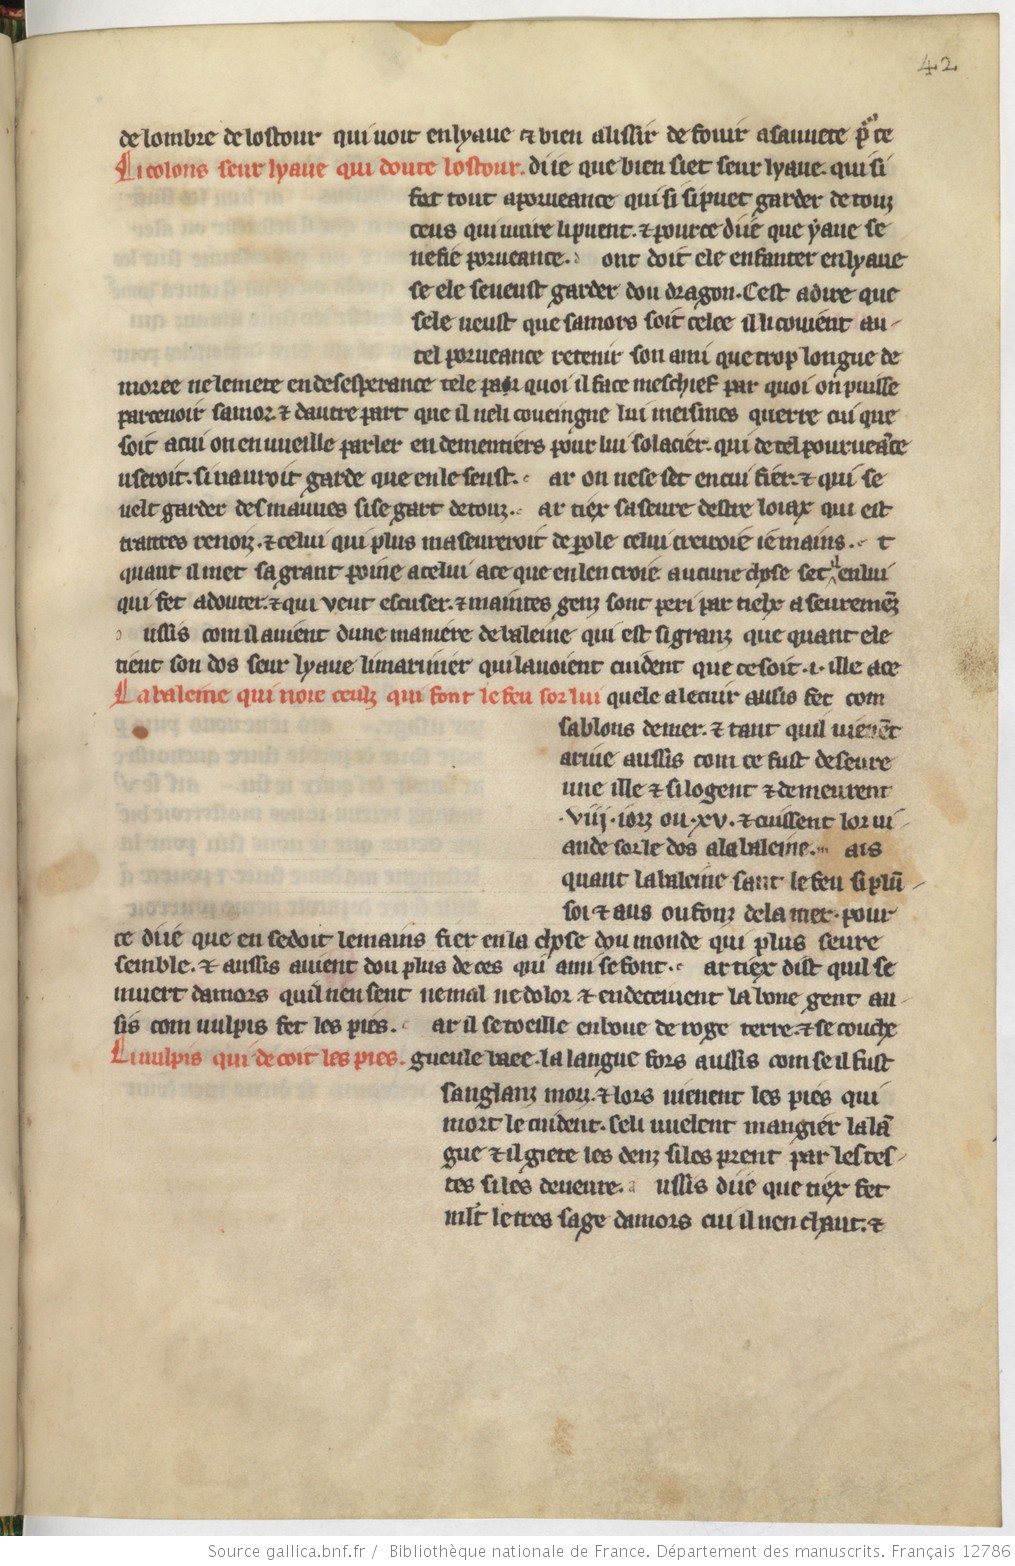 42
de lombre de lostour qui uoit en lyaue ⁊ bien a lissir de fouir a sauuete pͬ ce
Li colons seur lyaue qui doute lostour. diie que bien siet seur lyaue. qui si
fet tout a porueance qui si si puet garder de touz
ceus qui nuire li puent. ⁊ pource diie que yaue se
nefie porueance. ont doit ele enfanter en lyaue
se ele se ueust garder dou dragon. Cest a dire que
se le ueust que samors soit celee il li couient au-
tel porueance retenir son ami que trop longue de
moree ne le mete en desesperance tele par quoi il face meschief par quoi on puisse
parceuoir samor. ⁊ dautre part que il ne li coueingne lui meismes querre cui que
soit a cui on en uueille parler en dementiers pour lui solacier. qui de tel pourueance
useroit. si nauroit garde que en le seust. ar on ne se set en cui fier. ⁊ qui se
uelt garder des mauues si se gart de touz. ar tiex saseure destre loiax qui est
traitres renoiz. ⁊ celui qui plus maseureroit de ꝑole celui creroie ie mains. t
quant il met sa grant poine a celui a ce que en len croie aucune chose set il en lui
qui fet a douter. ⁊ qui veut escuser. ⁊ maintes genz sont peri par tielx aseuremēz
ussis com il auient dune maniere de baleine qui est si granz que quant ele
tient son dos seur lyaue li marinier qui la uoient cuident que ce soit .i. ille a ce
La baleine qui noie ceulz qui font le feu sor lui quele a le cuir ausis fet com
sablons de mer. ⁊ tant quil uienēt
ariue aussis com ce fust deseure
une ille ⁊ si logent ⁊ demeurent
.viij. iorz ou .xv. ⁊ cuissent lor ui-
ande sor le dos a la baleine. ais
quant la baleine sant le feu si plū-
soi ⁊ aus ou fonz de la mer. pour
ce diie que en se doit le mains fier en la chose dou monde qui plus seure
semble. ⁊ aussis auient dou plus de ces qui ami se font. ar tiex dist quil se
muert damors quil nen sent ne mal ne dolor ⁊ en deceiuent la bone gent au-
sis com uulpis fet les pies. ar il se toeille en boue de roge terre. ⁊ se couche
Li uulpis qui decoit les pies. gueule baee. la langue fors aussis com se il fust
sanglanz morz. ⁊ lors uienent les pies qui
mort le cuident. se li uuelent mangier la lā
gue ⁊ il giete les denz si les prent par les tes-
tes si les deueure. ussis diie que tiex fet
ml̄t le tres sage damors cui il nen chaut. ⁊
Source gallica.bnf.fr / Bibliothèque nationale de France. Département des manuscrits. Français 12786